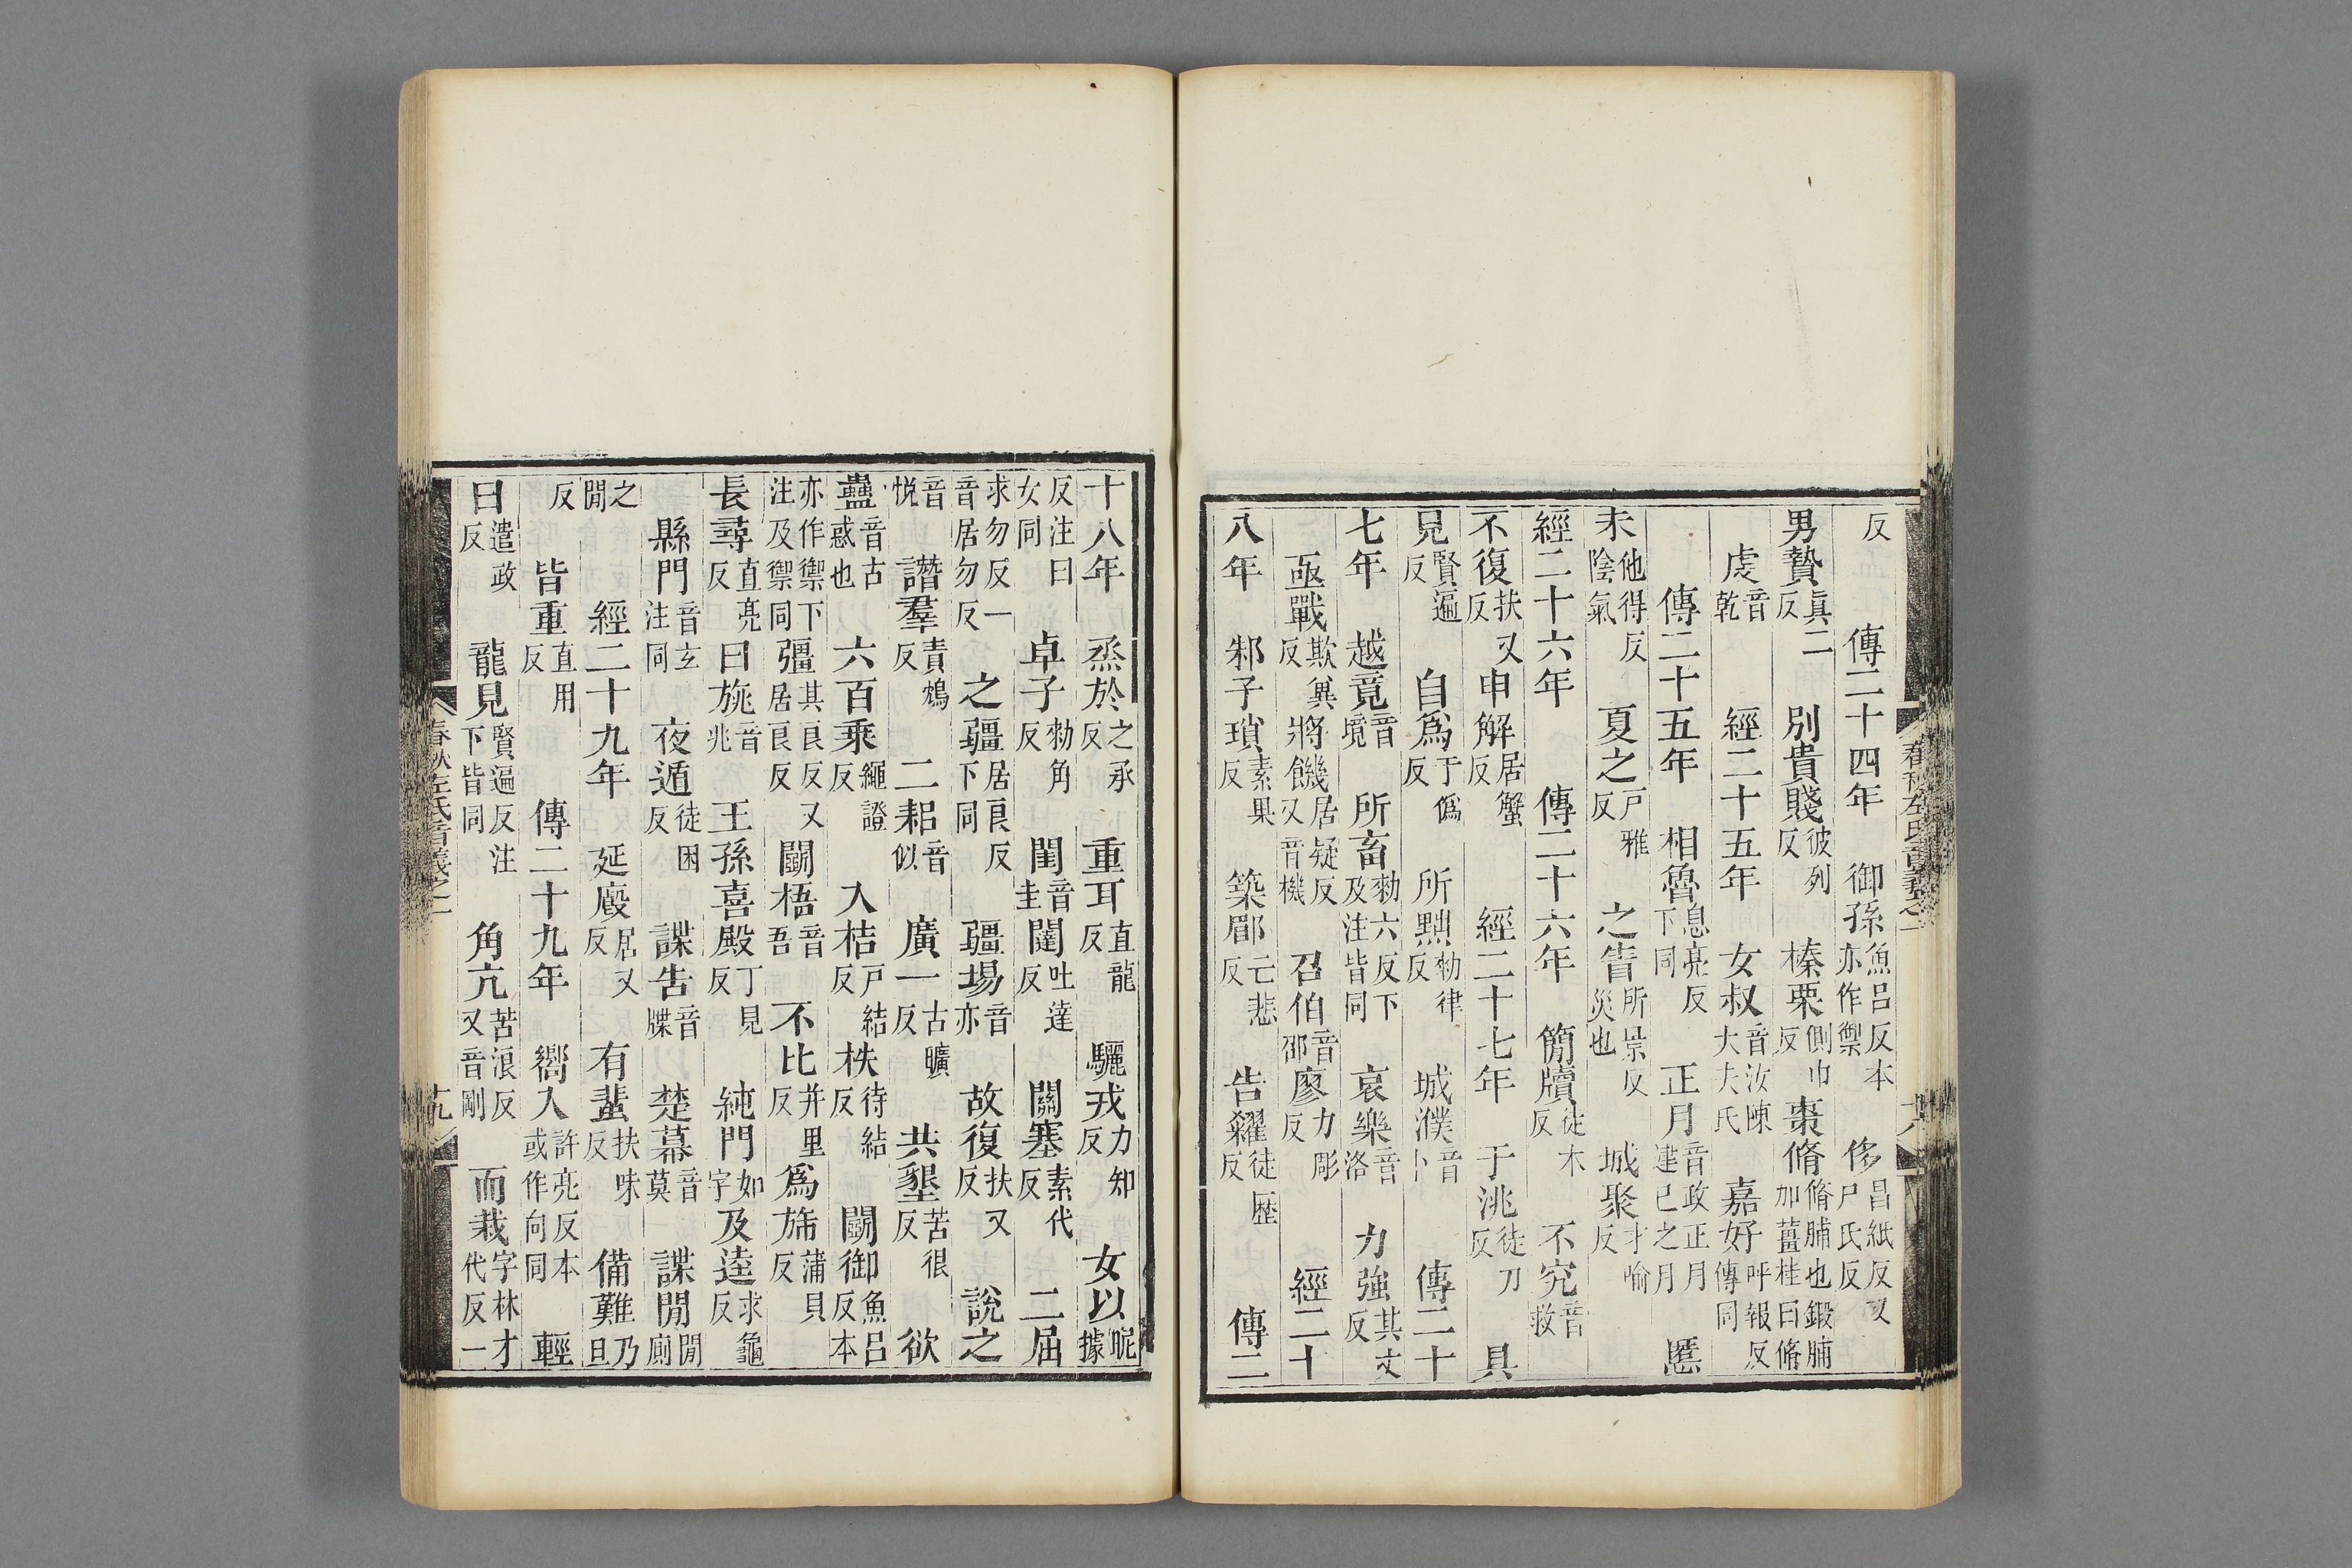 反　傳二十四年　御孫魚呂反本亦作禦　侈昌紙反又尸氏反
男贄真二反　別貴賤彼列反　榛栗側巾反　棗脩脩脯也鍛脯加薑桂曰脩
虔音乾　經二十五年　女叔音汝陳大夫氏　嘉好呼報反傳同
傳二十五年　相魯息亮反下同　正月音政正月建巳之月　慝
未他得反陰氣　夏之戸雅反　之眚所景反災也　城聚才喻反
經二十六年　傳二十六年　簡牘徒木反　不究音救
不復扶又反　申解居蟹反　經二十七年　于洮徒刀反　具
見賢遍反　自為于偽反　所黜勑律反　城濮音卜　傳二十
七年　越竟音境　所畜勑六反下及注皆同　哀樂音洛　力強其丈反
亟戰欺兾反　將饑居疑反又音機　召伯音邵　廖力彫反　經二十
八年　郲子瑣素果反　築郿亡悲反　告糴徒歷反　傳二
春秋左氏音義之一
十八
十八年　烝於之承反　重耳直龍反　驪戎力知反　女以昵據
反注曰女同　卓子勑角反　閨音圭　闥吐達反　關塞素代反　二屈
求勿反一音居勿反　之疆居良反下同　疆埸音亦　故復扶又反　說之
音悅　譖羣責鴆反　二耜音似　廣一古曠反　共墾苦很反　欲
蠱音古惑也　六百乘繩證反　入桔戸結反　柣待結反　鬭御魚呂反本
亦作禦下注及禦同　彊其良反又居良反　鬭梧音吾　不比并里反　為旆蒲貝反
長尋直亮反　曰旐音兆　王孫喜殿丁見反　純門如字　及逵求龜反
縣門音玄注同　夜遁徒困反　諜告音牒　楚幕音莫　諜閒閒廁
之閒　經二十九年　延廄居又反　有蜚扶味反　備難乃旦
反　皆重直用反　傳二十九年　嚮入許亮反本或作向同　輕
曰遣政反　龍見賢遍反注下皆同　角亢苦浪反又音剛　而栽字林才代反一
春秋左氏音義之一
十九